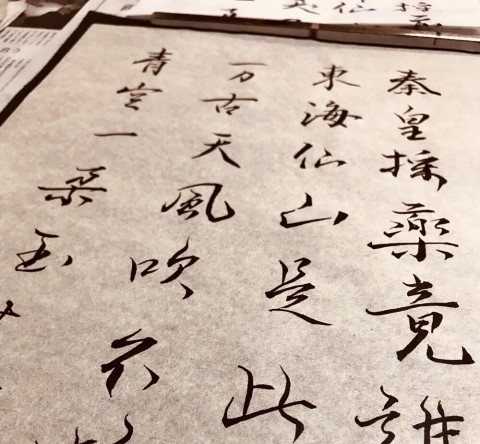 秦皇採藥竟難
東海仙山是此
万古天風吹不
青空一朶玉